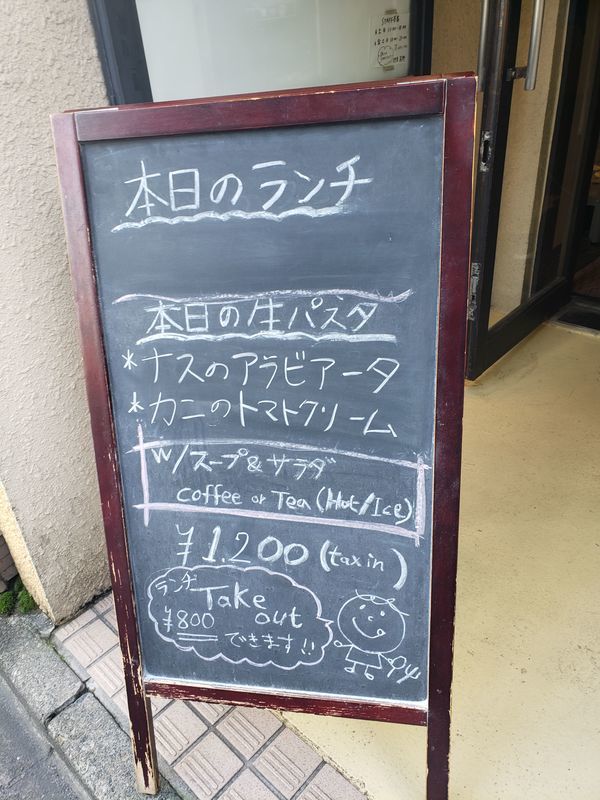 本日のランチ
本日の生パスタ
*ナスのアラビアータ
*カニのトマトクリーム
W/スープ&サラダ
coffee or Tea (Hot/Ice)
¥1,200 (tax in)
ランチ Take
¥800 out
できます!!